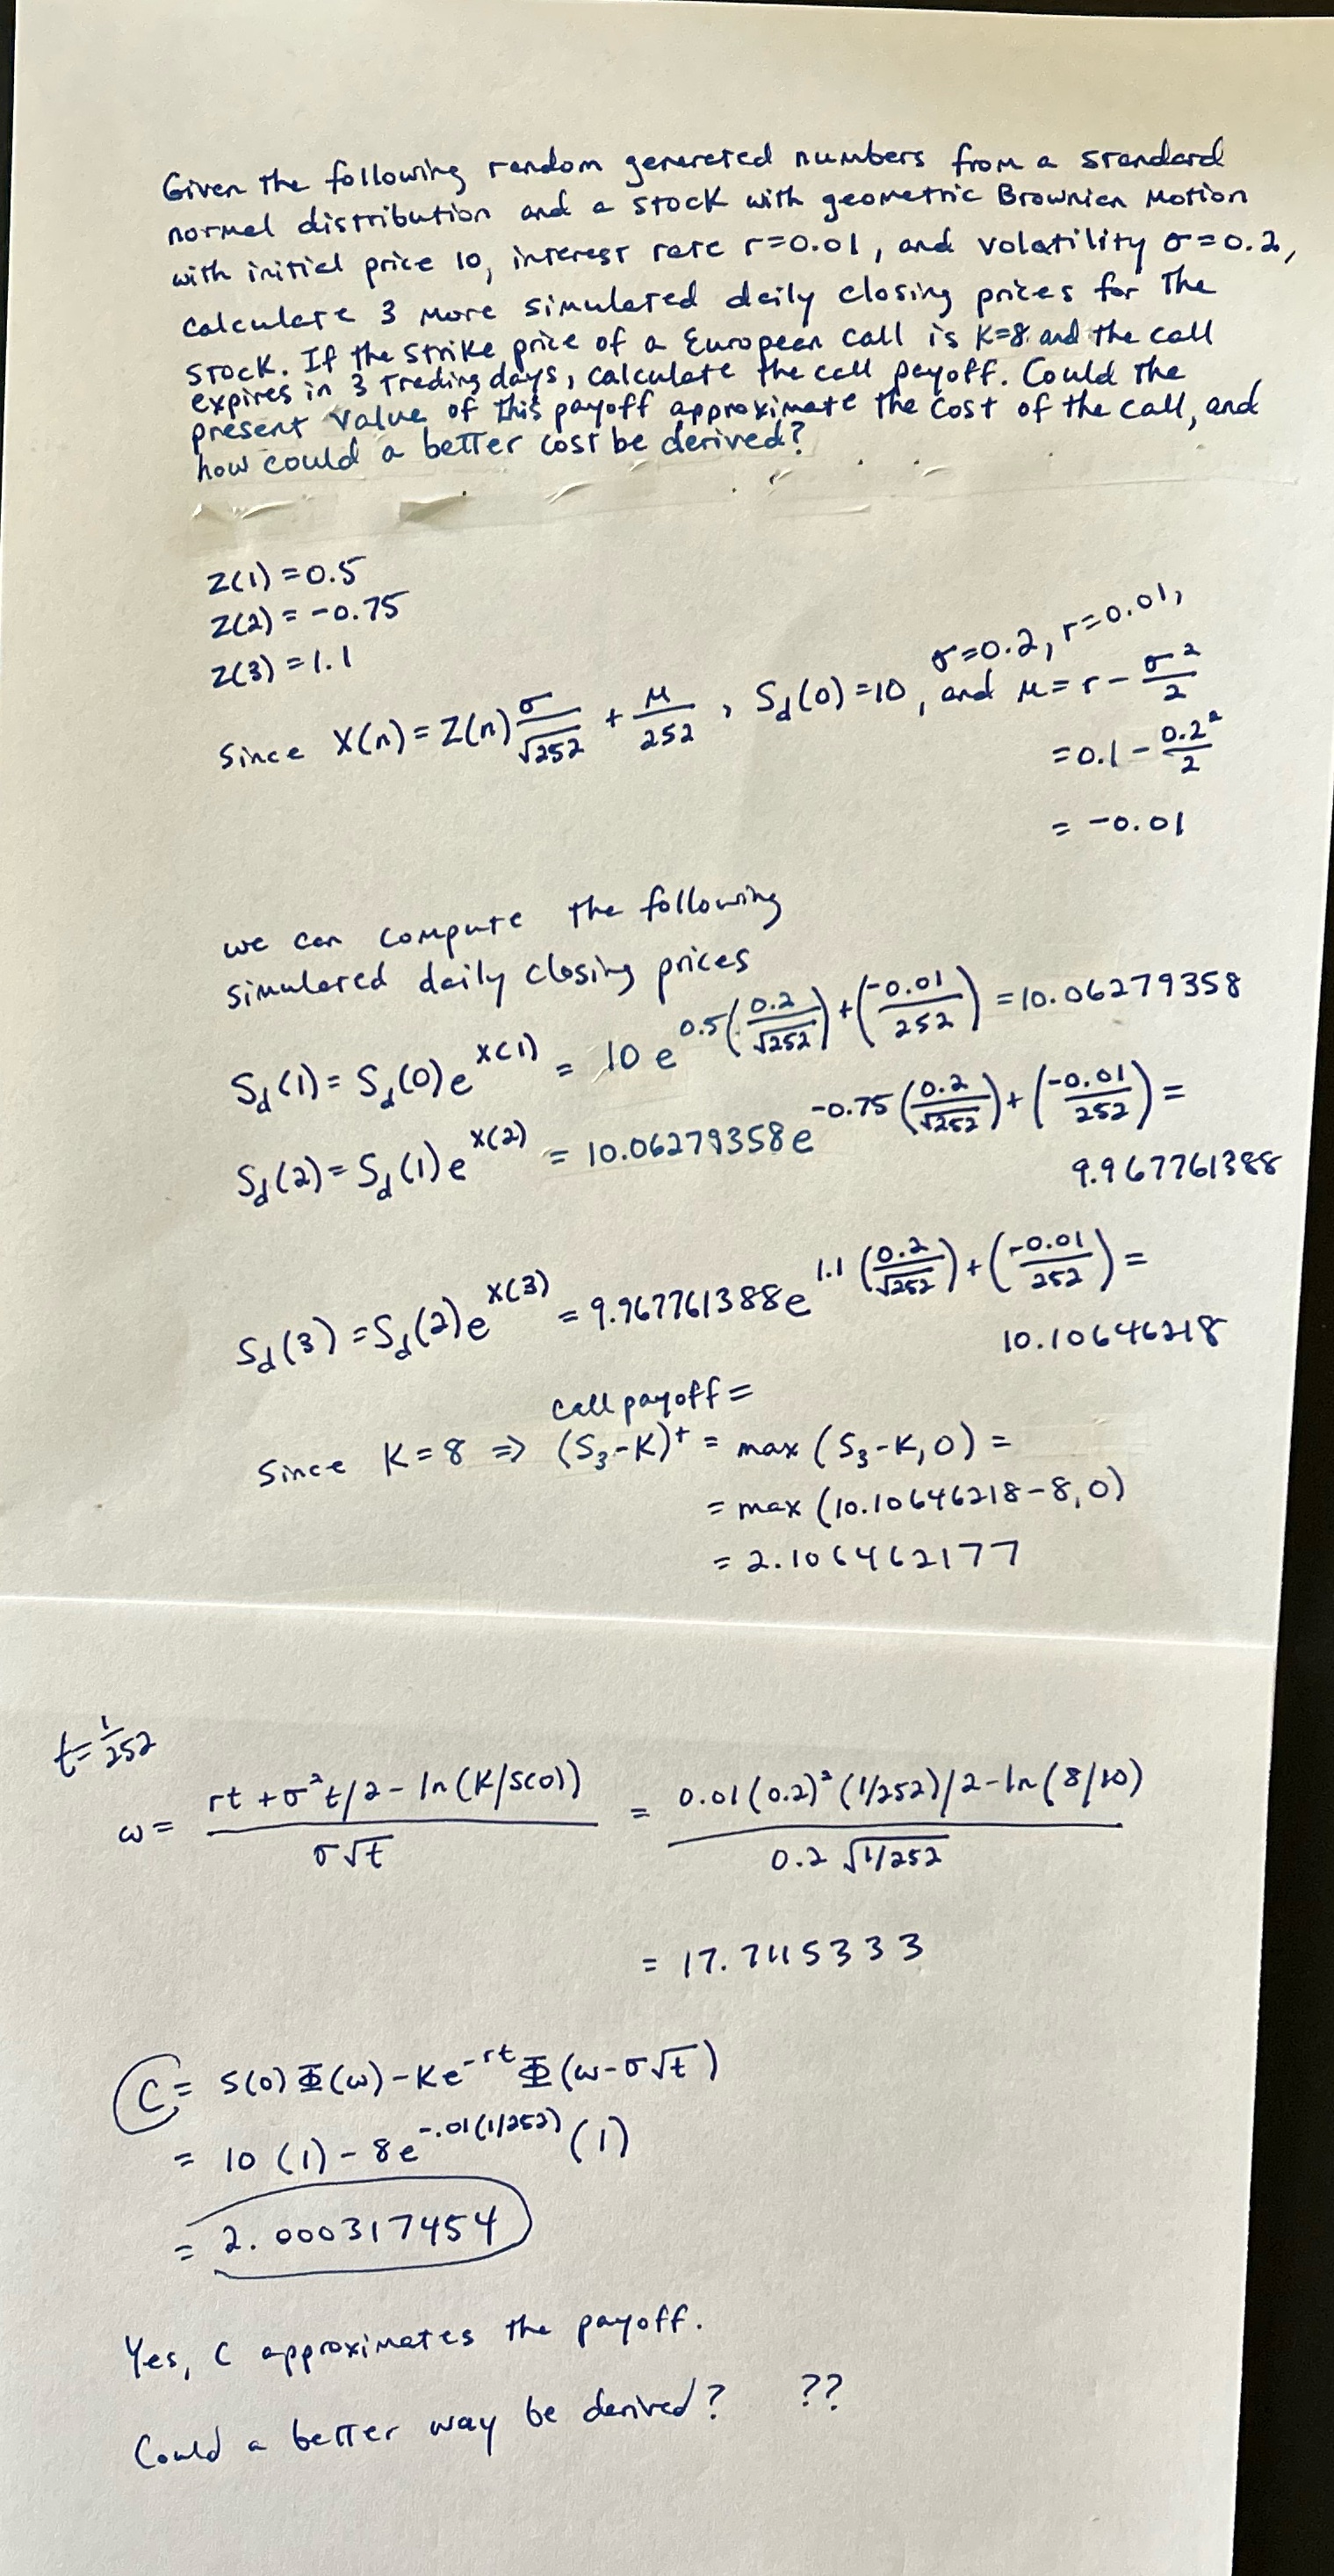 Given the following random generated numbers from a standard
normal distribution and a stock with geometric Brownian Motion
with initial price 10, interest rate r=0.01, and volatility σ=0.2,
calculate 3 more simulated daily closing prices for the
stock. If the strike price of a European call is K=8 and the call
expires in 3 trading days, calculate the call payoff. Could the
present value of this payoff approximate the cost of the call, and
how could a better cost be derived?
Z(1)=0.5
Z(2)=-0.75
Z(3)=1.1
σ=0.2, r=0.01,
Since X(n)=Z(n) σ/√252 + μ/252, S_d(0)=10, and μ=r-σ²/2
=0.1-0.2²/2
=-0.01
we can compute the following
simulated daily closing prices
S_d(1)=S_d(0)e^X(1) = 10e^0.5(0.2/√252)+(-0.01/252) =10.06279358
S_d(2)=S_d(1)e^X(2) = 10.06279358e^-0.75(0.2/√252)+(-0.01/252) =
9.967761388
S_d(3)=S_d(2)e^X(3) = 9.967761388e^1.1(0.2/√252)+(-0.01/252) =
10.10646218
call payoff =
Since K=8 ⇒ (S₃-K)⁺ = max(S₃-K,0) =
= max(10.10646218-8,0)
= 2.106462177
t=1/252
ω= (rt+σ²t/2-ln(K/S(0)))/(σ√t) = (0.01(0.2)²(1/252)/2-ln(8/10))/(0.2√1/252)
= 17.7115333
C= S(0)Φ(ω)-Ke^-rt Φ(ω-σ√t)
= 10(1)-8e^-.01(1/252)(1)
= 2.000317454
Yes, C approximates the payoff.
Could a better way be derived? ??